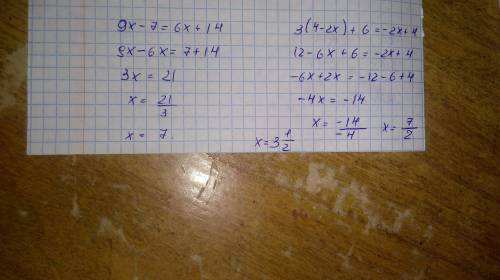 9x - 7 = 6x + 14
9x - 6x = 7 + 14
3x = 21
x = 21/3
x = 7.
3(4 - 2x) + 6 = -2x + 4
12 - 6x + 6 = -2x + 4
-6x + 2x = -12 - 6 + 4
-4x = -14
x = -14/-4 x = 7/2
x = 3 1/2